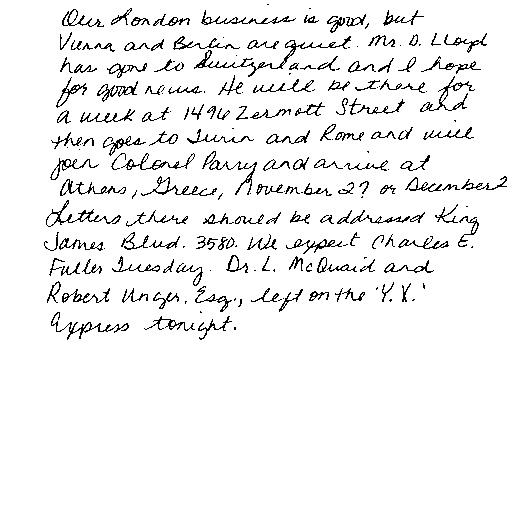 Our London business is good, but
Vienna and Berlin are quiet. Mr. D. Lloyd
has gone to Switzerland and I hope
for good news. He will be there for
a week at 1496 Zermott Street and
then goes to Turin and Rome and will
join Colonel Parry and arrive at
Athens, Greece, November 27 or December 2
Letters there should be addressed King
James Blvd. 3580. We expect Charles E.
Fuller Tuesday. Dr. L. McQuaid and
Robert Unger, Esq., left on the 'Y.X.'
Express tonight.